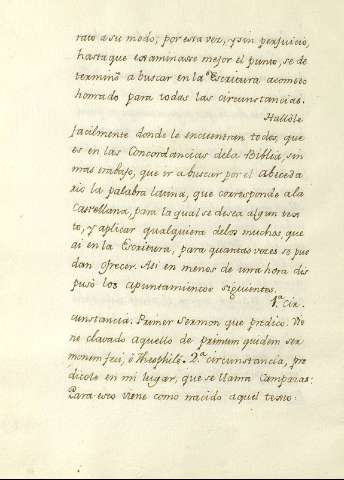 rato a su modo; por esta vez, y sin perjuicio,
hasta que examinasse mejor el punto, se de
terminò a buscar en la Escritura acomodo
honrado para todas las circunstancias.
Hallòle
facilmente donde le encuentran todos, que
es en las Concordancias dela Biblia, sin
mas trabajo, que ir a buscar por el Abeceda
rio la palabra latina, que corresponde a la
Castellana, para la qual se desea algun tex
to, y aplicar qualquiera delos muchos, que
ai en la Escritura, para quantas vezes se pue
dan ofrecer. Asi en menos de una hora dis
puso los apuntamientos siguientes.
1.ª Cir-
cunstancia. Primer Sermon que predico. Vie
ne clavado aquello de primum quidem ser
monem feci, ò Theophile. 2.ª circunstancia, pre
dicole en mi lugar, que se llama Campazas:
Para esto viene como nacido aquel texto: